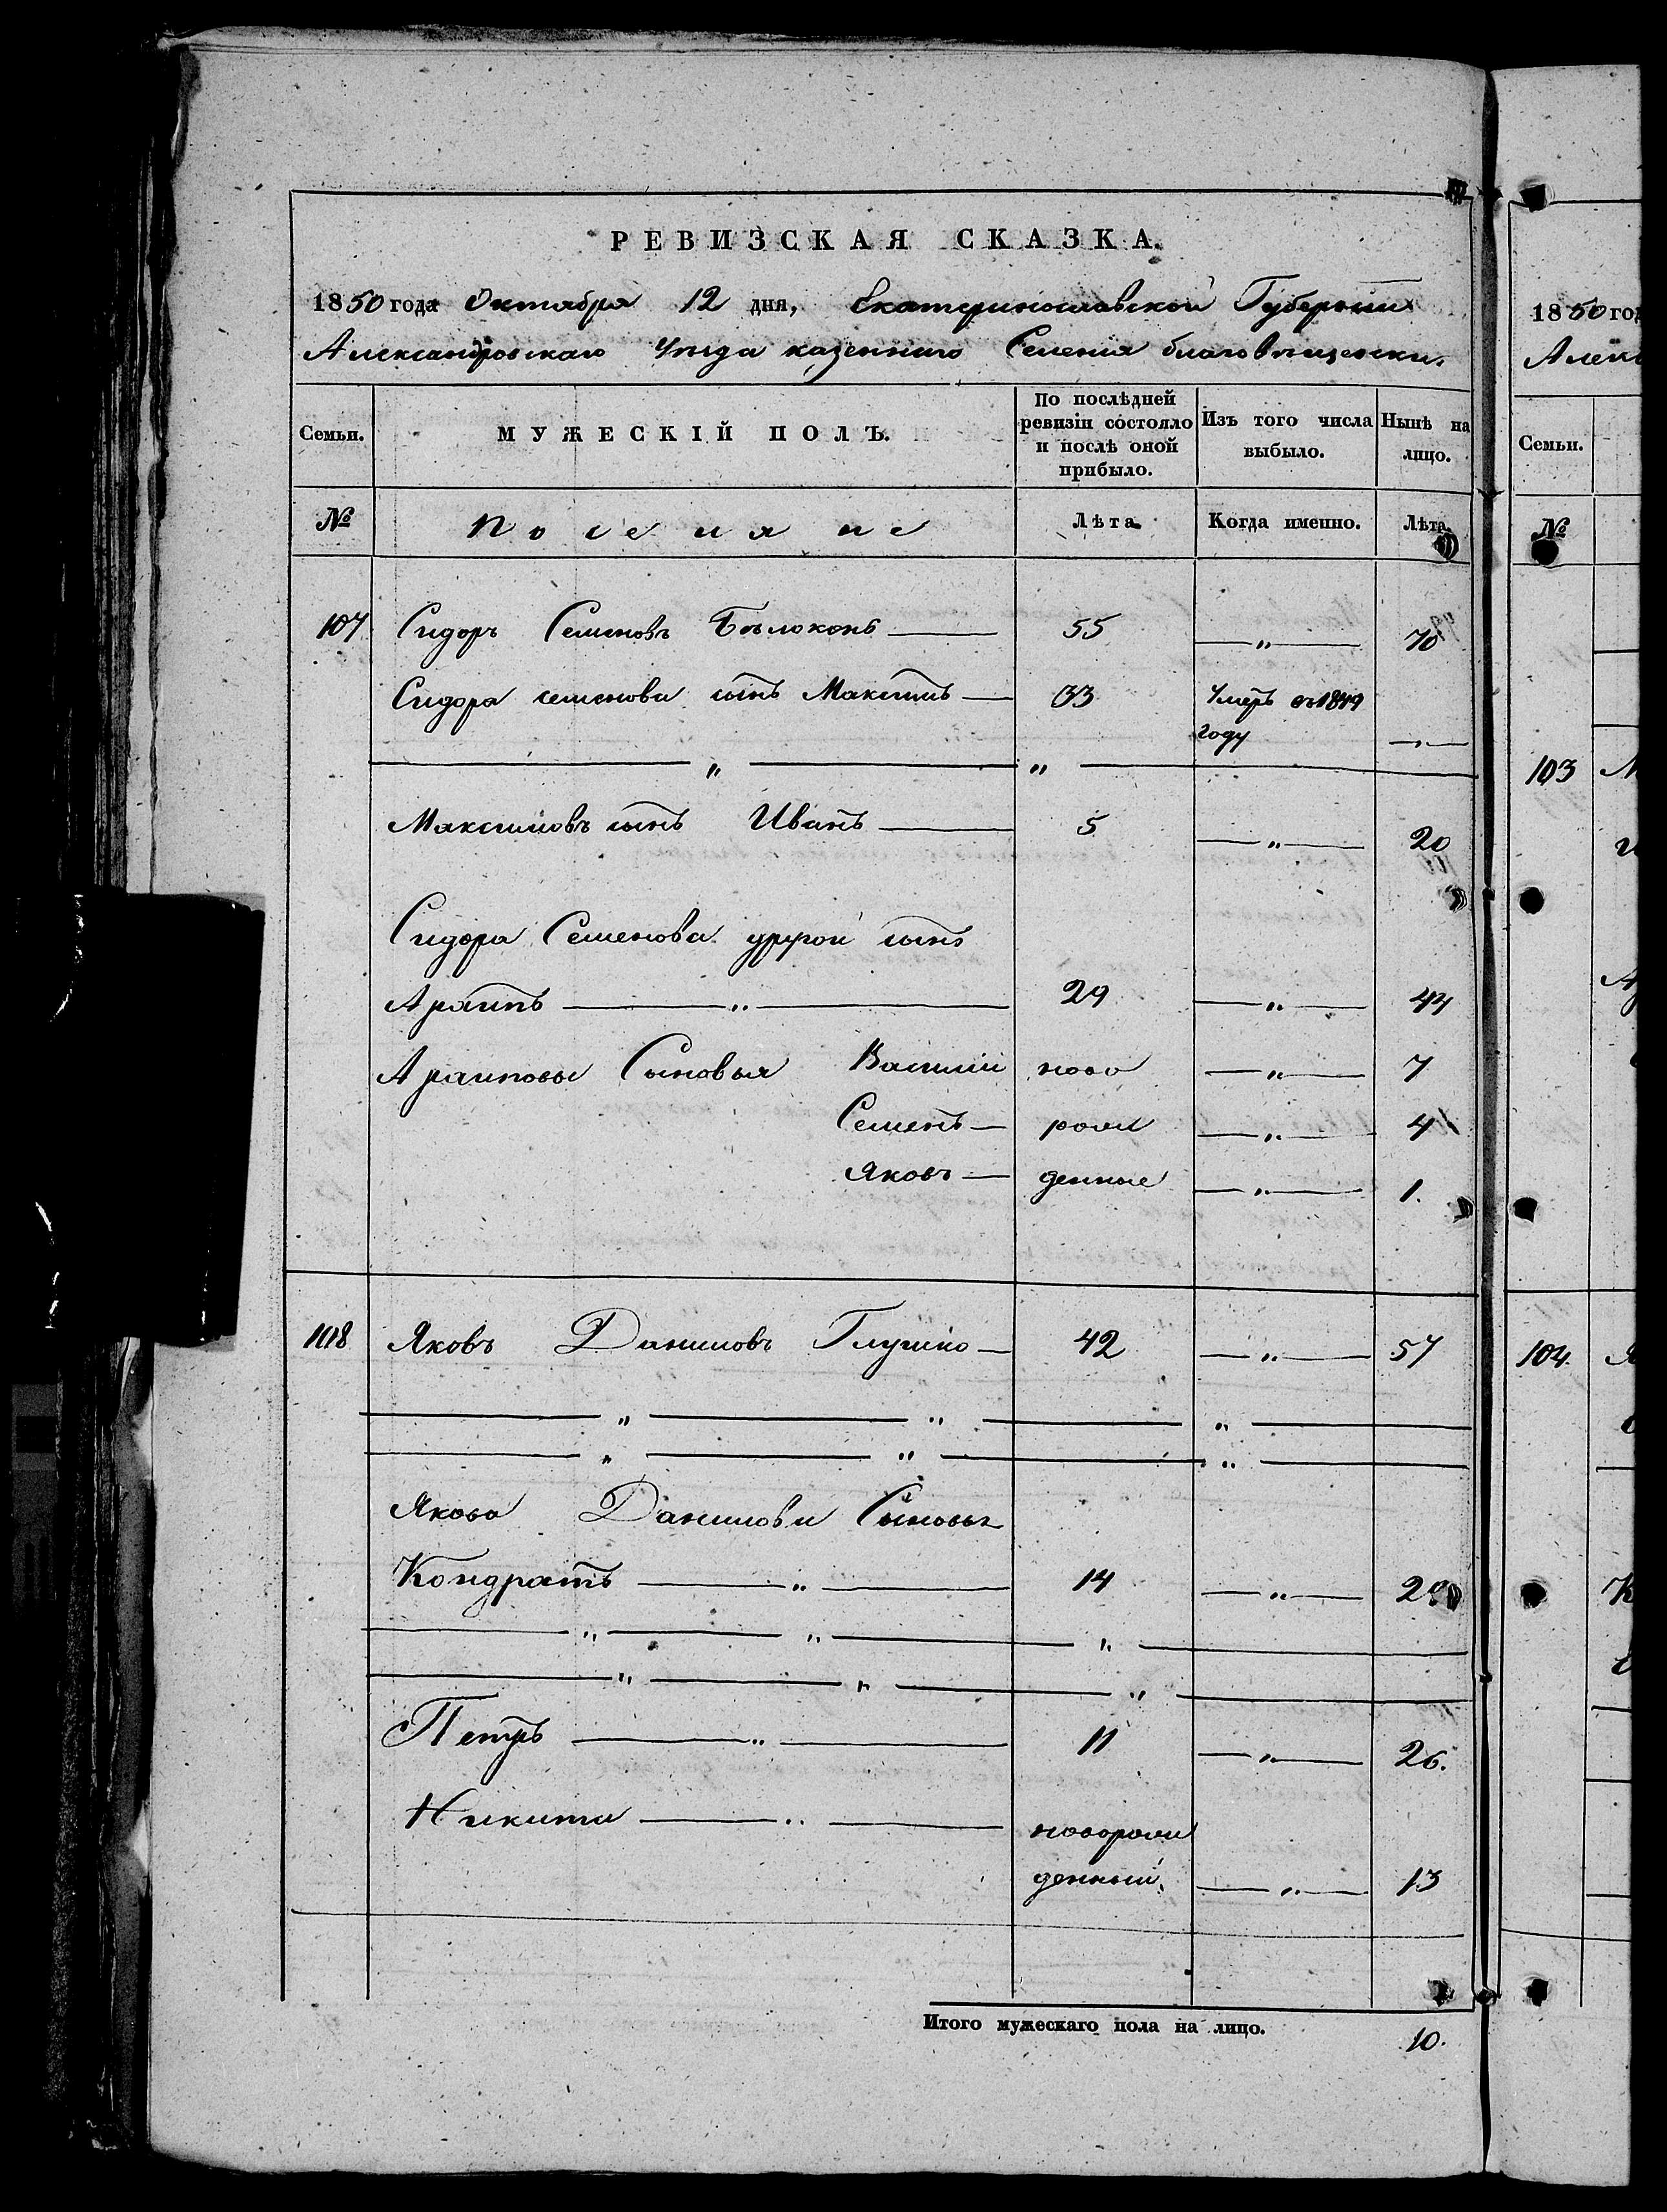 РЕВИЗСКАЯ СКАЗКА.
1850 года Октября 12 дня, Екатеринославской Губернии
Александровскаго Уѣзда казеннаго Селенія благовѣщенки.
Семьи.
МУЖЕСКІЙ ПОЛЪ.
По послѣдней ревизіи состояло и послѣ оной прибыло.
Изъ того числа выбыло.
Нынѣ на лицо.
№
Поселяне
Лѣта
Когда именно.
Лѣта.
107 Сидоръ Семеновъ Бѣлоконь — 55 —„— 70
Сидора семенова сынъ Максимъ — 33 Умеръ въ 1849
году —„—
—„—„—
Максимовъ сынъ Иванъ — 5 —„— 20
Сидора Семенова другой сынъ
Архипъ —„— 29 —„— 44
Архиповы Сыновья Василій ново —„— 7
Семенъ — рож —„— 4
Яковъ — денные —„— 1.
108 Яковъ Даниловъ Глушко — 42 —„— 57
—„—„—„—
—„—„—„—
Якова Данилова Сыновья
Кондратъ —„— 14 —„— 29
—„—„—„—
—„—„—„—
Петръ —„— 11 —„— 26.
Никита —„— новорож
денный. —„— 13
Итого мужескаго пола на лицо.
10.
1850 год
Алекс
Семьи.
№
103
104.